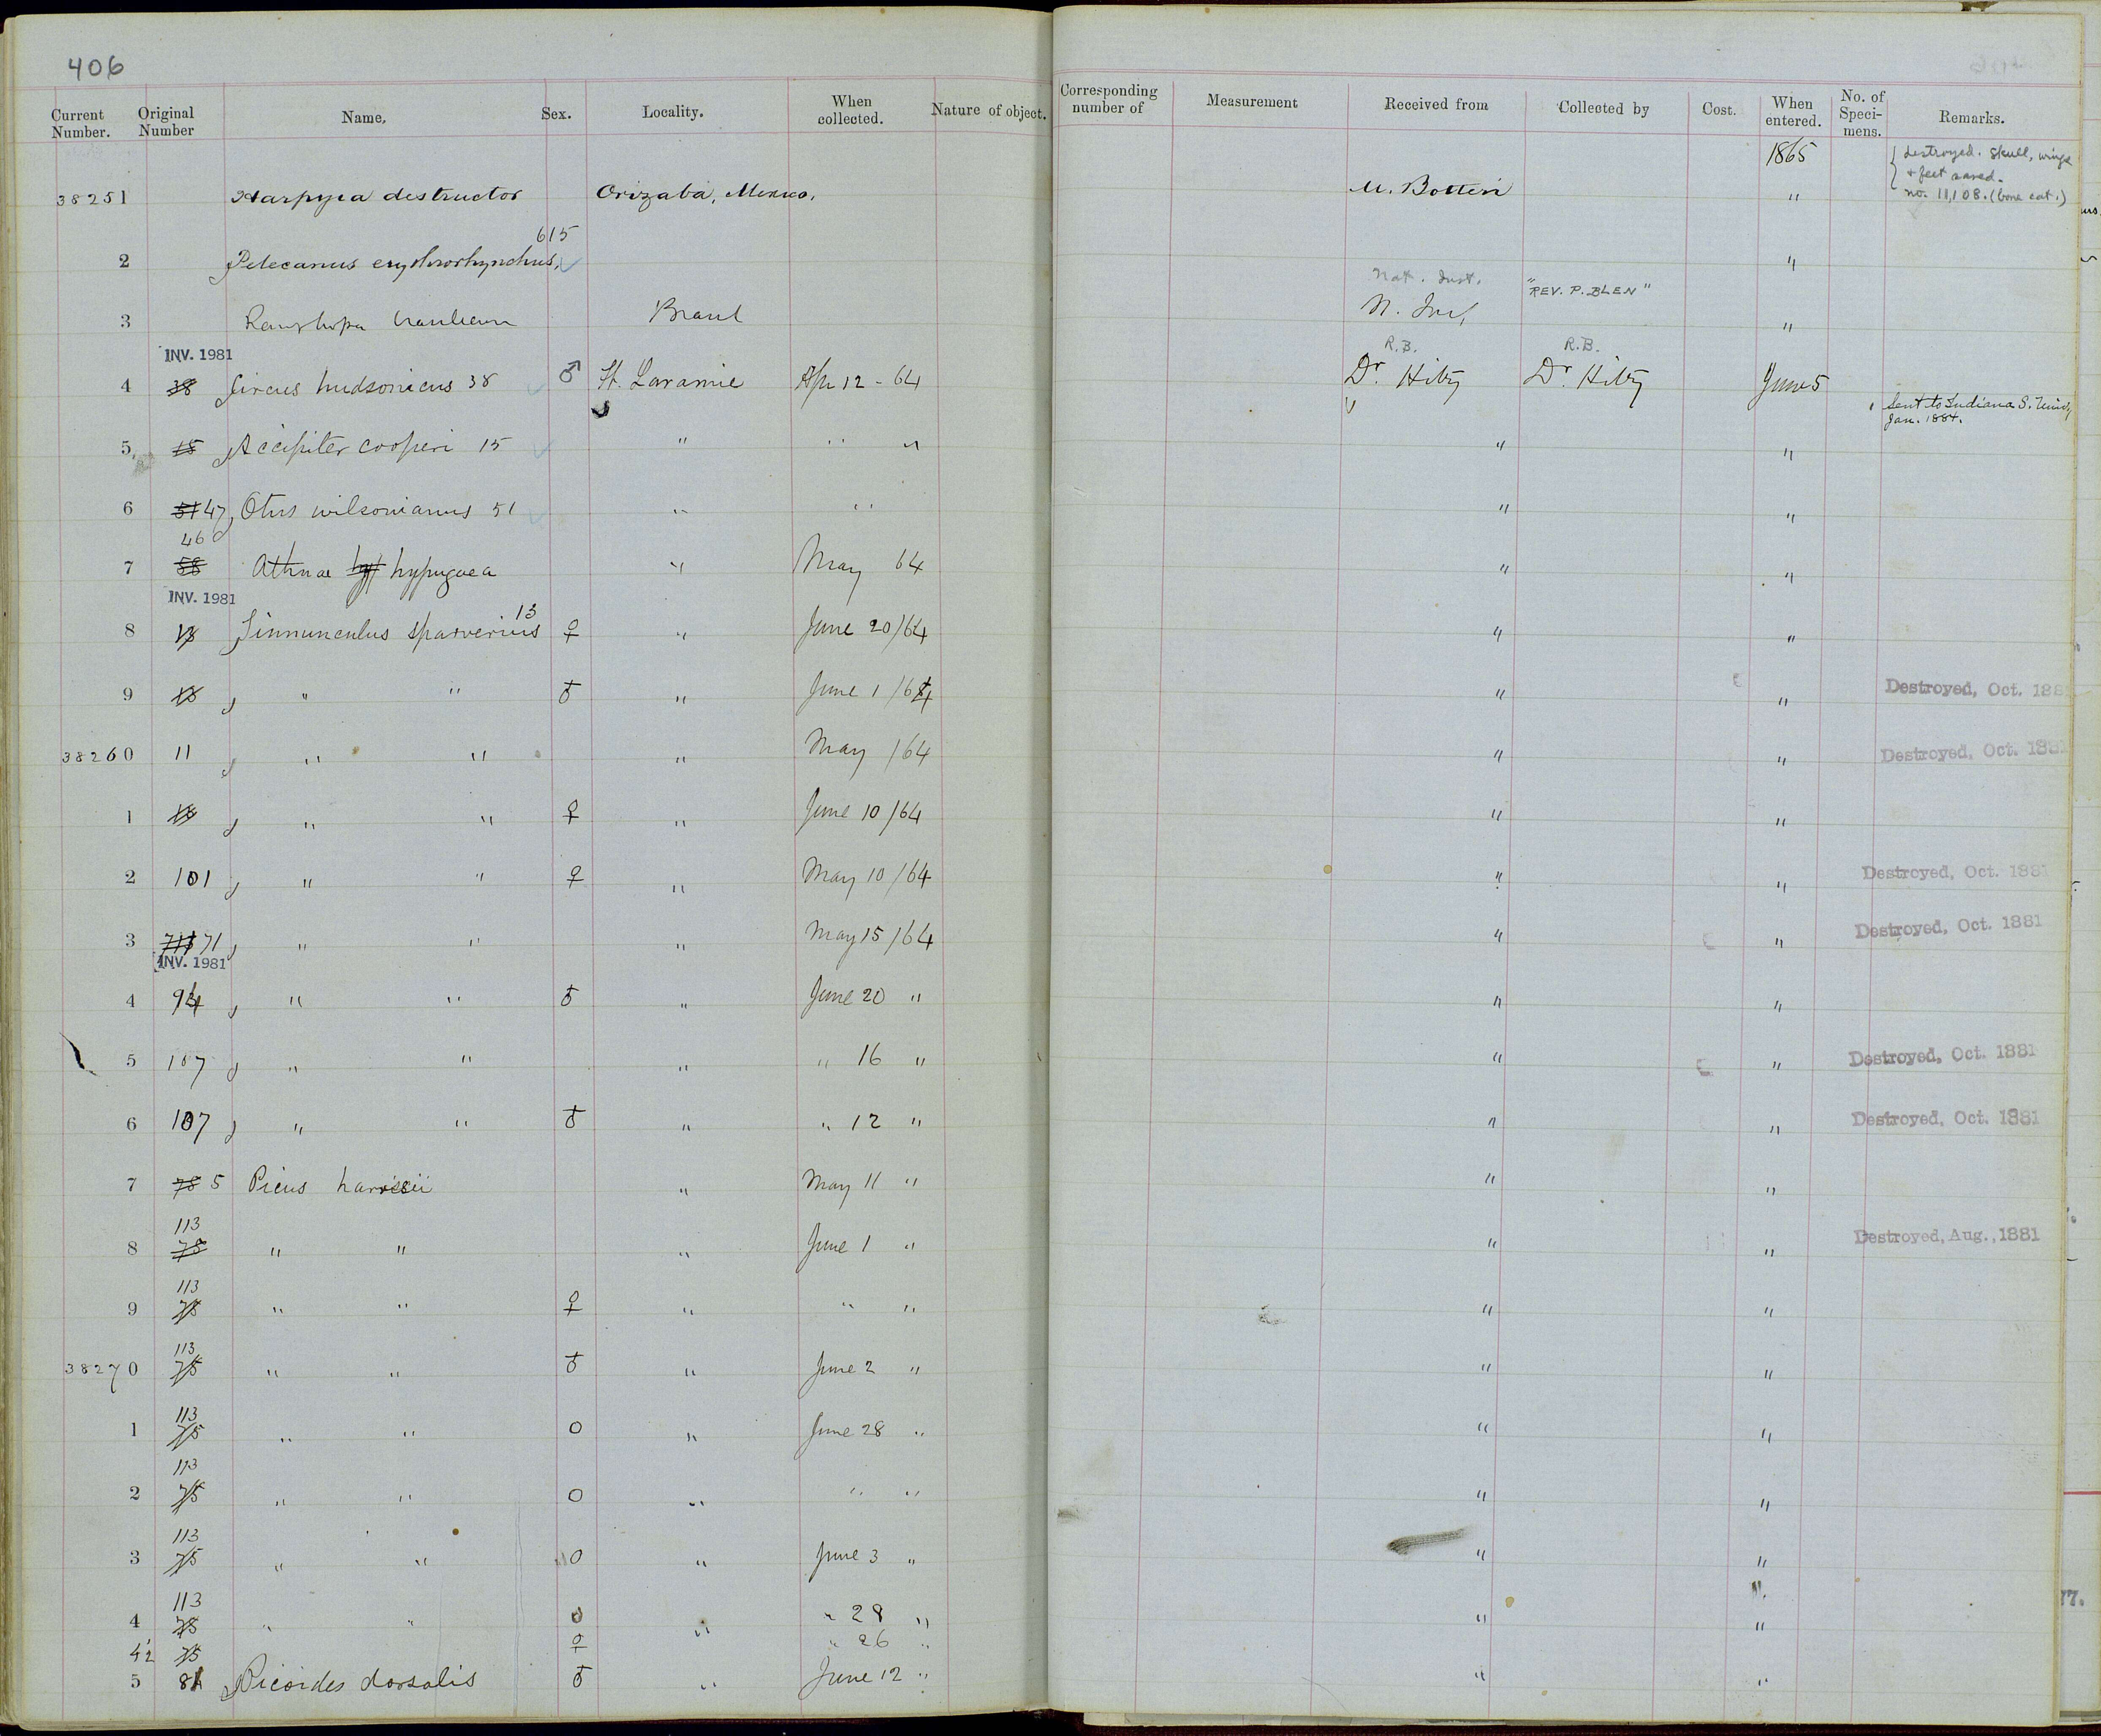 406
Current Number. Original Number Name. Sex. Locality. When collected. Nature of object. Corresponding number of Measurement Received from Collected by Cost. When entered. No. of Specimens. Remarks.
1865 destroyed. Skull, wings
+ feet saved.
38251 Harpyia destructor Orizaba, Mexico. M. Botteri " no. 11,108. (bone cat.)
615
2 Pelecanus erythrorhynchus. "
Nat. Inst. "REV. P. BLEN"
3 Brazil N. Inst. "
INV. 1981 R.B. R.B.
4 38 Circus hudsonicus 38 ♂ Ft. Laramie Apr 12 - 64 Dr. Hitz Dr. Hitz June 5
Sent to Indiana S. Univ,
Jan. 1884.
5 15 Accipiter cooperi 15 " " " " "
6 51 47 Otus wilsonianus 51 " " " "
46
7 58 Athnae hyp hypugaea " May 64 " "
INV. 1981
13
8 18 Tinnunculus sparverius ♀ " June 20/64 " "
9 18 " " ♂ " June 1/64 " " Destroyed, Oct. 188
38260 11 " " " May /64 " " Destroyed, Oct. 1881
1 18 " " ♀ " June 10/64 " "
2 101 " " ♀ " May 10/64 " " Destroyed, Oct. 1881
3 71 " " " May 15/64 " " Destroyed, Oct. 1881
INV. 1981
4 94 " " ♂ " June 20 " " "
5 107 " " " " 16 " " " Destroyed, Oct. 1881
6 107 " " ♂ " " 12 " " " Destroyed, Oct. 1881
7 78 5 Picus harrisii " May 11 " " "
113
8 78 " " " June 1 " " " Destroyed, Aug., 1881
113
9 75 " " ♀ " " " " "
113
38270 75 " " ♂ " June 2 " " "
113
1 75 " " O " June 28 " " "
113
2 75 " " O " " " " "
113
3 75 " " O " June 3 " " "
113
4 75 " " " " 28 " " "
4½ 75 ♀ " 26 "
5 81 Picoides dorsalis ♂ " June 12 " " "
77.